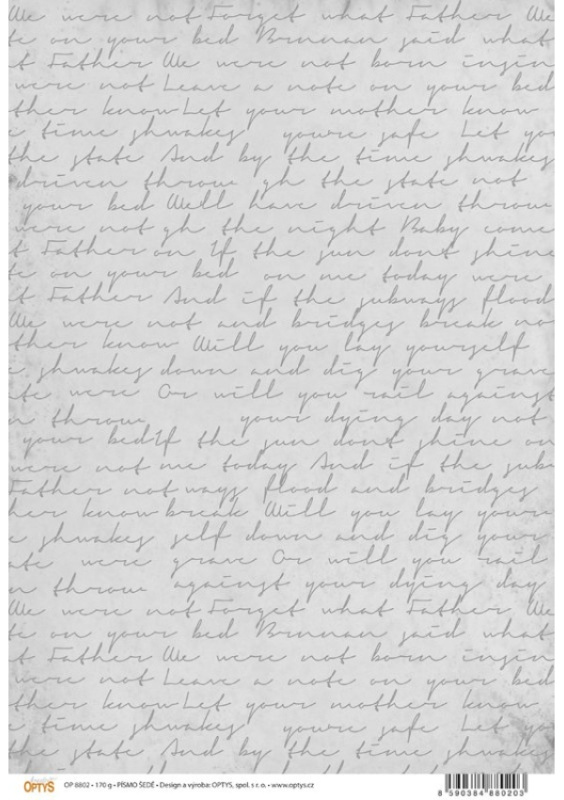 We were not Forget what Father We
te on your bed Brennan said what
t Father We were not born in sin
were not Leave a note on your bed
ther know Let your mother know
e time shwakes youre safe Let yo
the state And by the time shwakes
driven throw gh the state not
your bed Well have driven throw
were not gh the night Baby come
t Father on If the sun dont shine
te on your bed on me today were
t Father And if the subways flood
We were not and bridges break no
ther know Will you lay yourself
e shwakes down and dig your grave
ate were Or will you rail against
n throw your dying day not
your bed If the sun dont shine on
were not me today And if the sub
Father not ways flood and bridges
her know break Will you lay your
e shwakes self down and dig your
ate were grave Or will you rail
n throw against your dying day
We were not Forget what Father We
te on your bed Brennan said what
t Father We were not born in sin
were not Leave a note on your bed
ther know Let your mother know
e time shwakes youre safe Let yo
the state And by the time shwakes
OPTYS OP 8802 • 170 g • PÍSMO ŠEDÉ • Design a výroba: OPTYS, spol. s r. o. • www.optys.cz
8 590384 880203